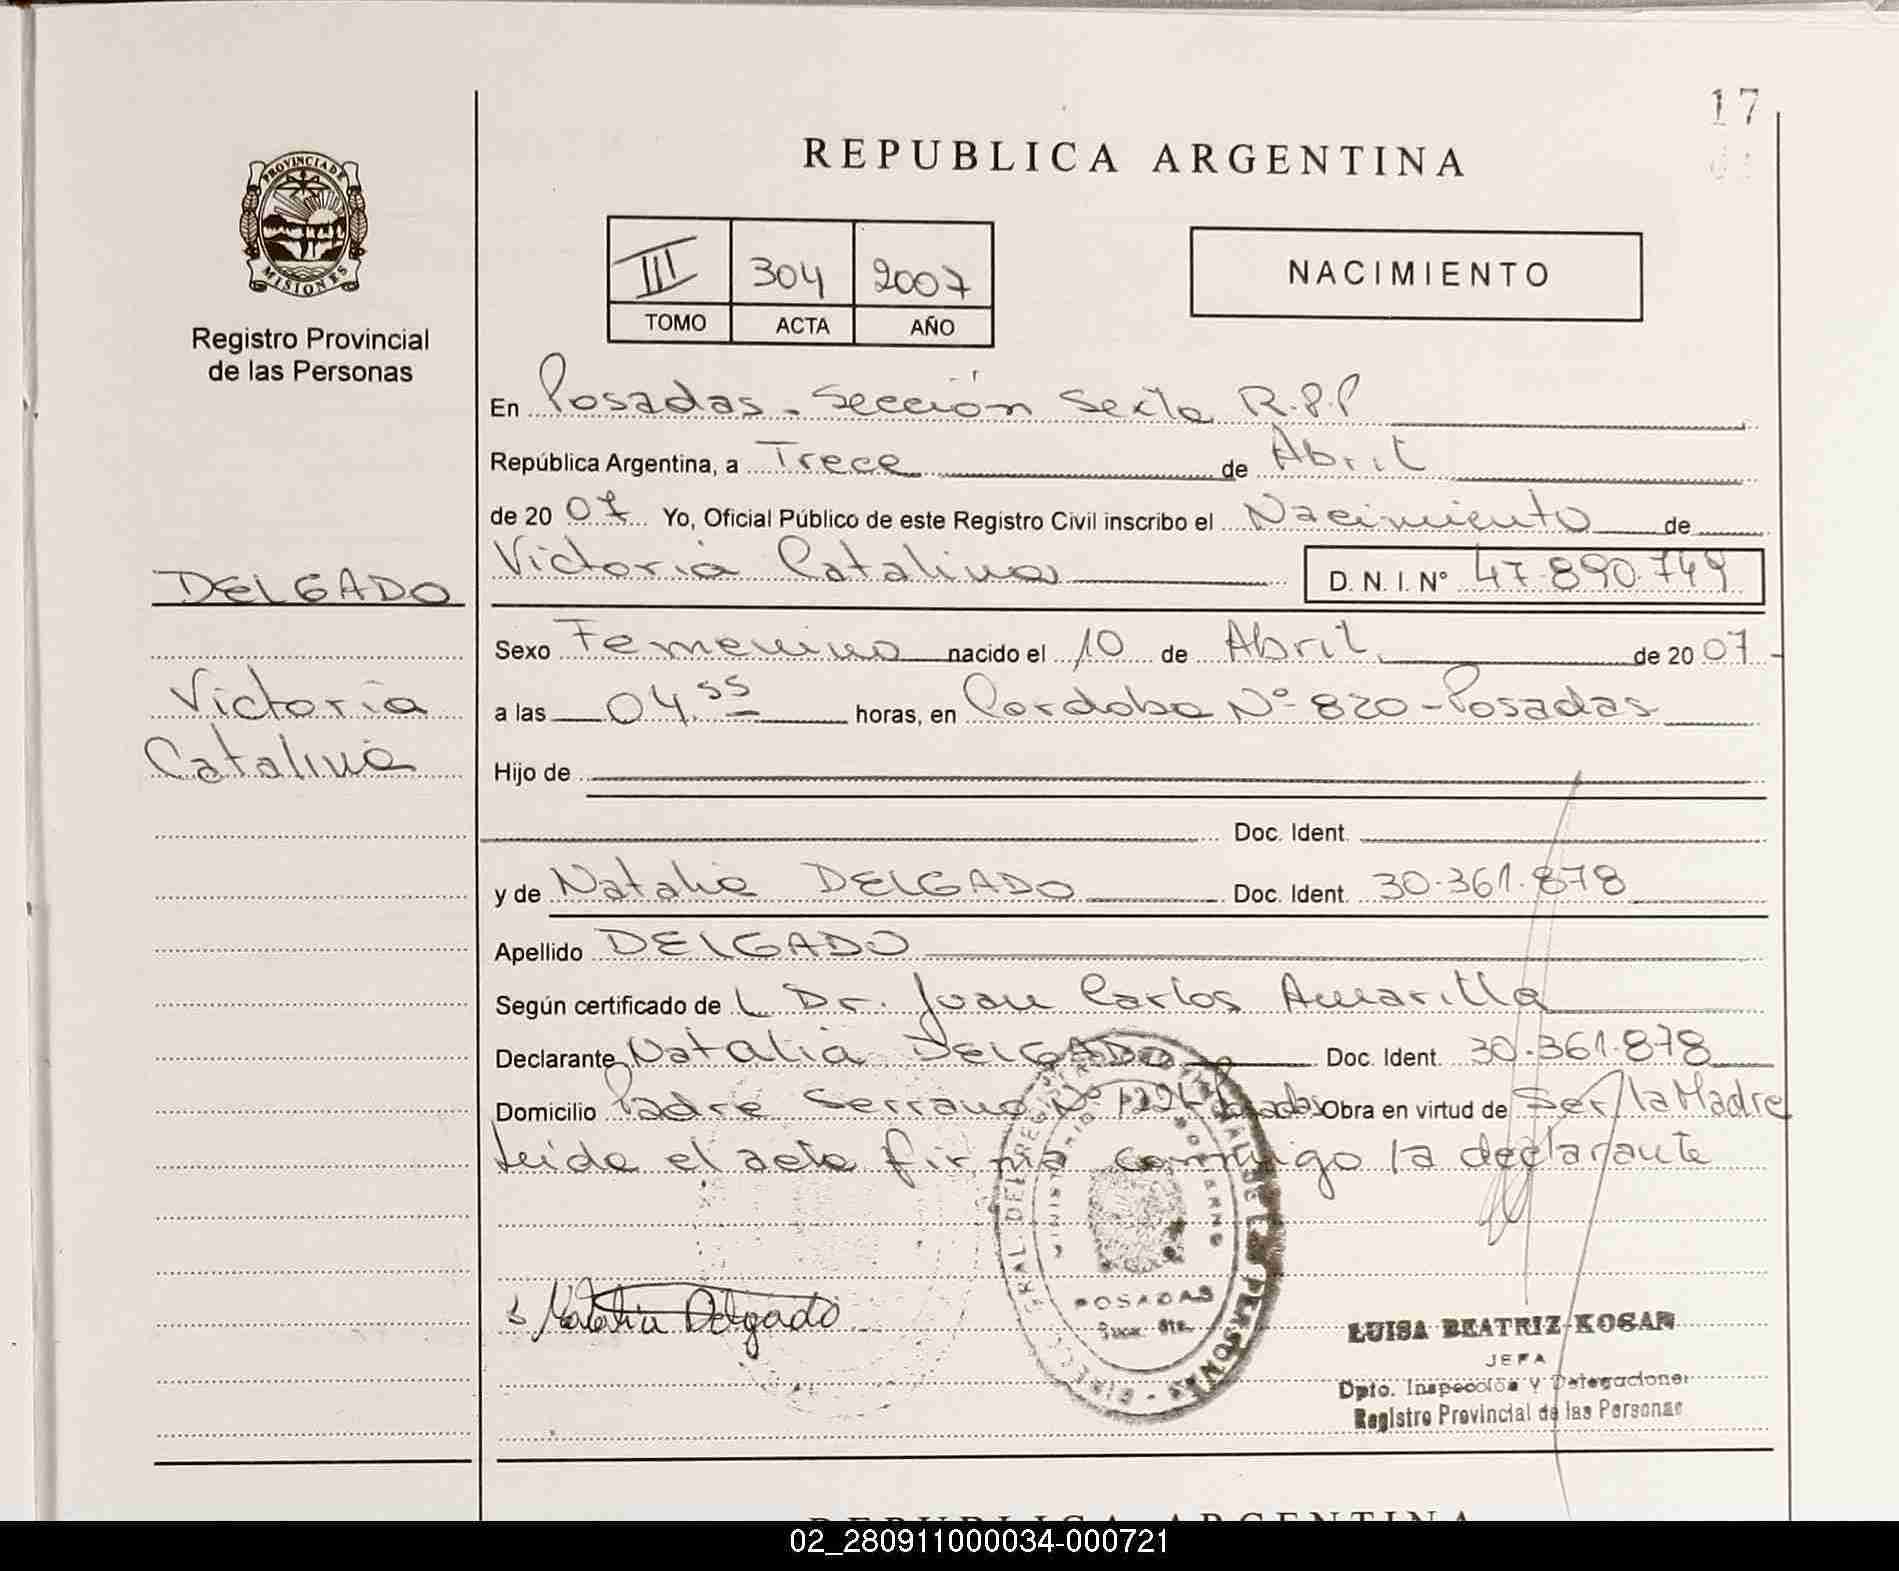 17
PROVINCIA DE
MISIONES
Registro Provincial
de las Personas
REPUBLICA ARGENTINA
III 304 2007
TOMO ACTA AÑO
NACIMIENTO
En Posadas - Sección Sexta R.P.P
República Argentina, a Trece de Abril
de 20 07 Yo, Oficial Público de este Registro Civil inscribo el Nacimiento de
DELGADO
Victoria Catalina D. N. I. N° 47.890.749
Sexo Femenino nacido el 10 de Abril de 20 07
Victoria
a las 04.55 horas, en Cordoba N° 820 - Posadas
Catalina
Hijo de
Doc. Ident.
y de Natalia DELGADO Doc. Ident. 30.361.878
Apellido DELGADO
Según certificado de L Dr. Juan Carlos Amarilla
Declarante Natalia DELGADO Doc. Ident. 30.361.878
Domicilio Padre Serrano N° Posadas Obra en virtud de Ser la Madre
leida el acta firma conmigo la declarante
Natalia Delgado
POSADAS
LUISA BEATRIZ KOGAN
JEFA
Dpto. Inspección y Delegaciones
Registro Provincial de las Personas
REPUBLICA ARGENTINA
02_280911000034-000721